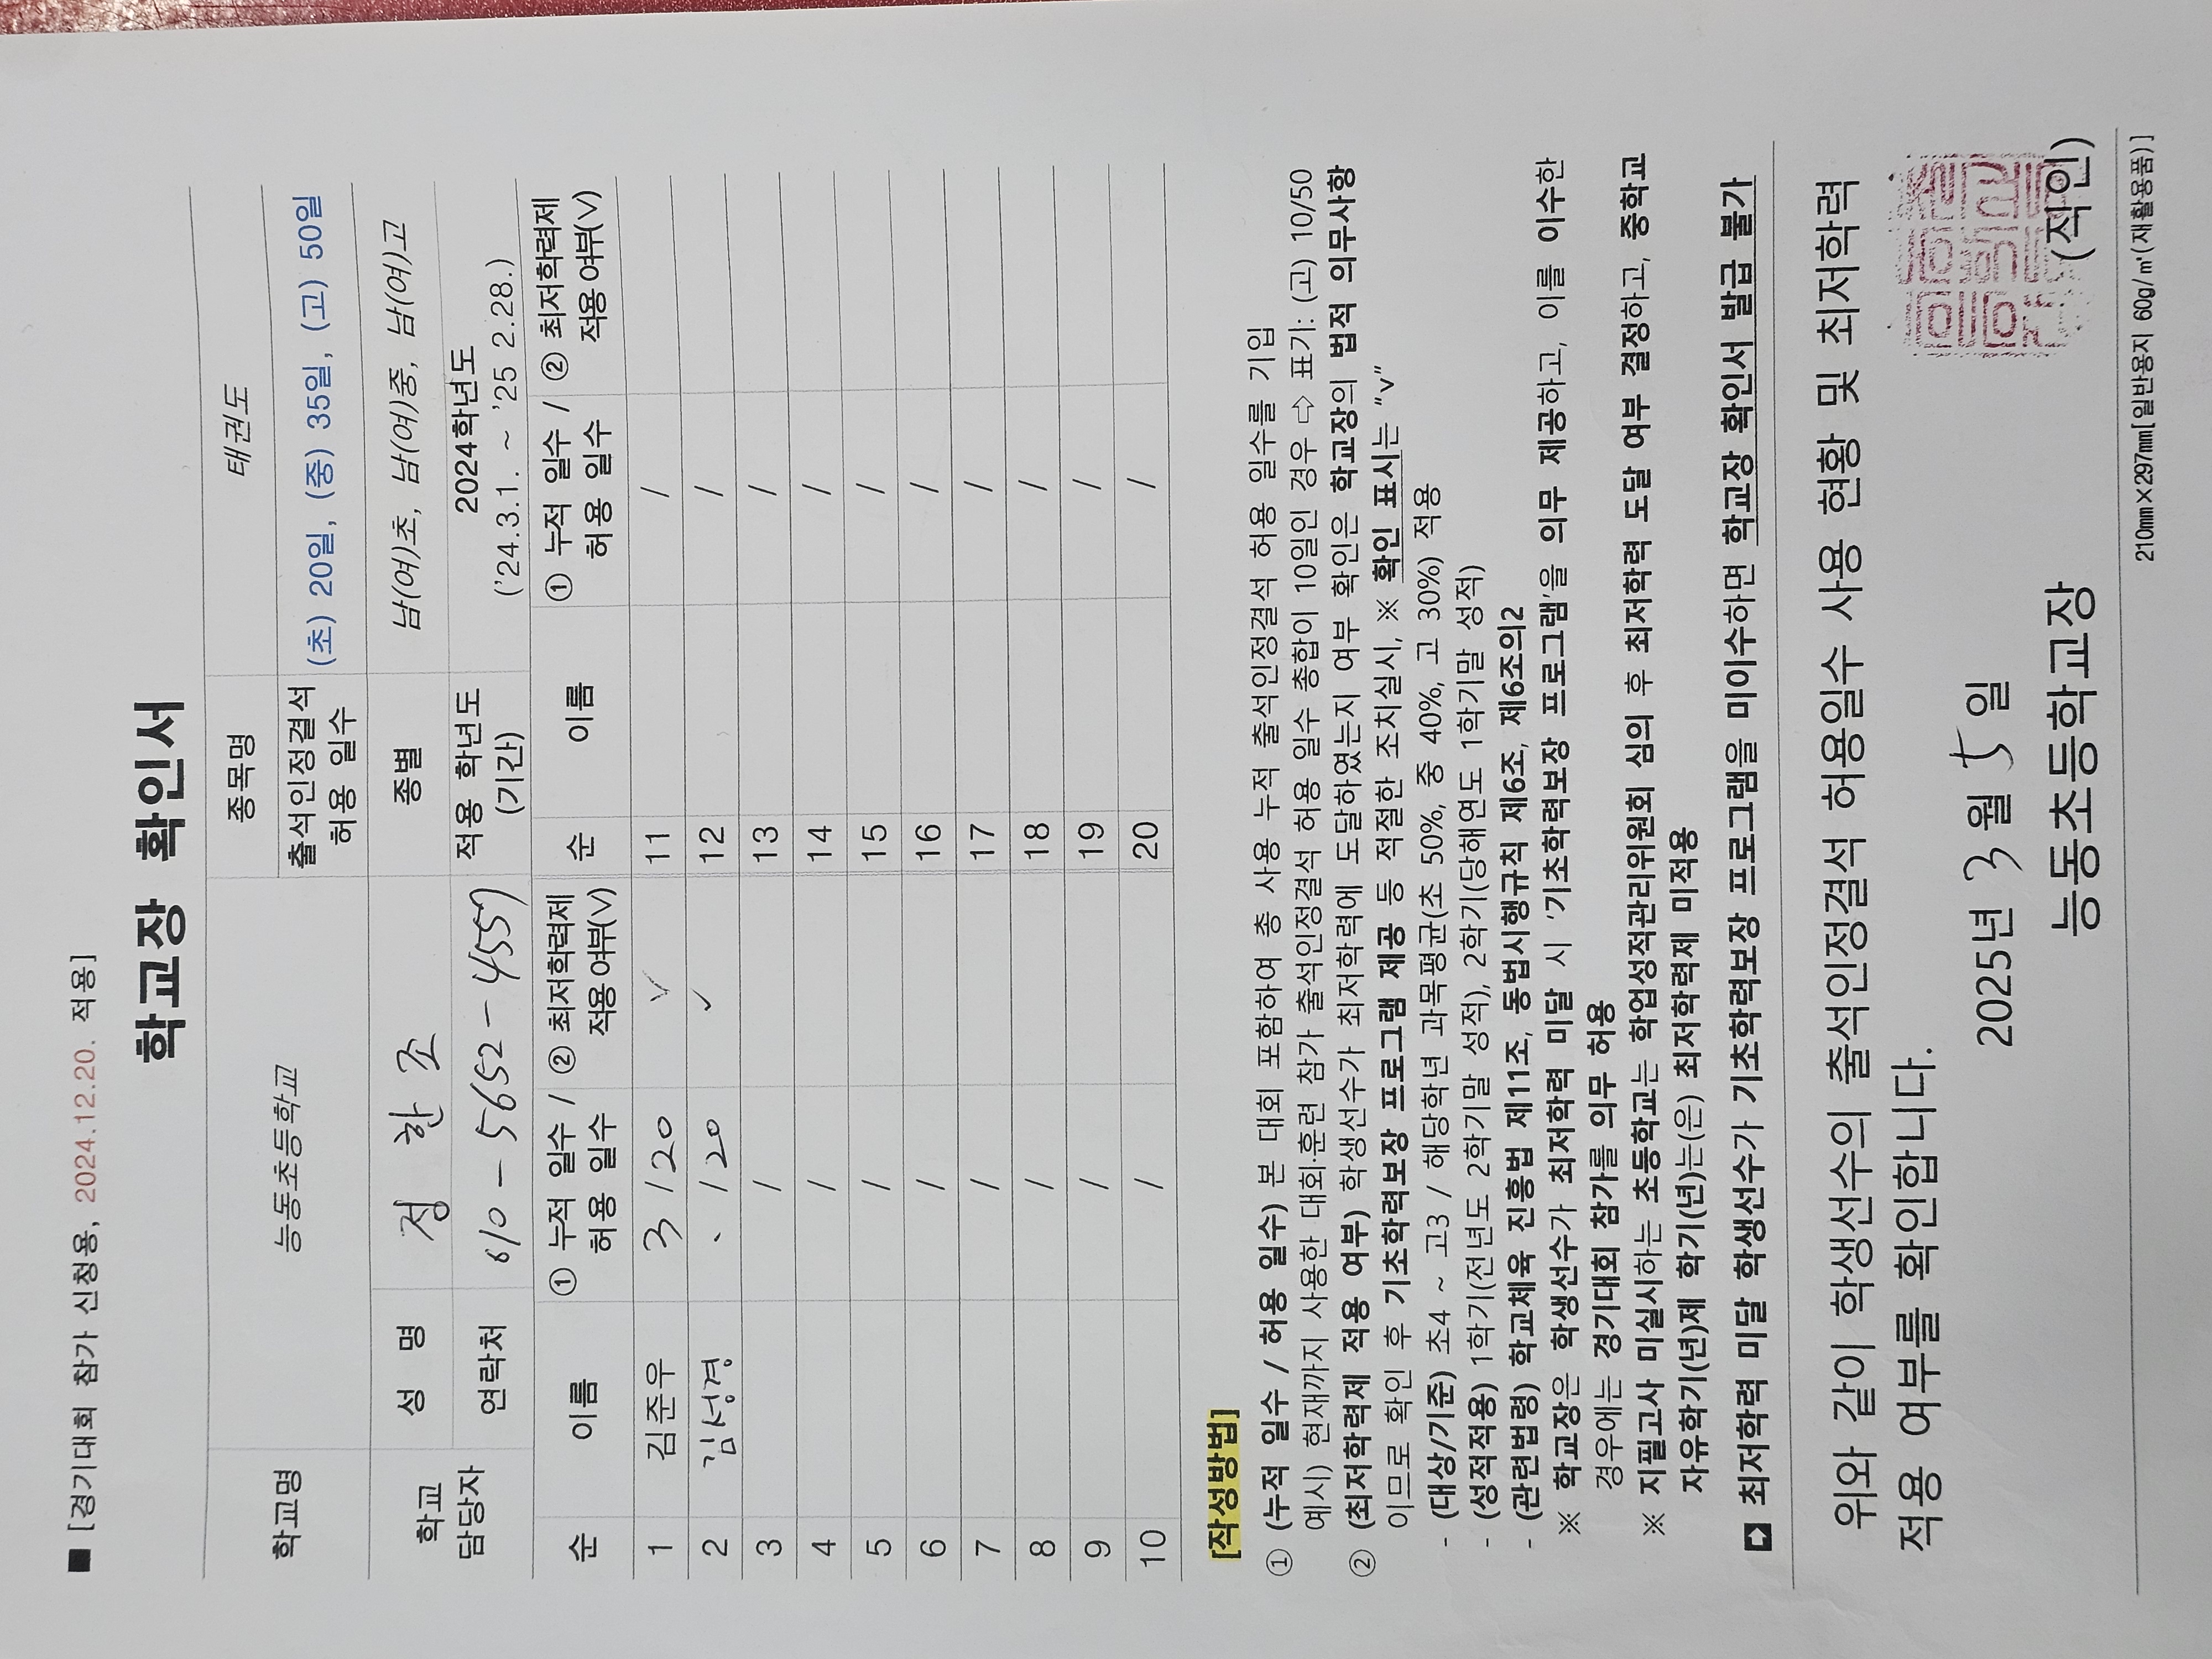 ■ [경기대회 참가 신청용, 2024.12.20. 적용]
학교장 확인서
학교명 능동초등학교 종목명 태권도
출석인정결석 허용 일수 (초) 20일, (중) 35일, (고) 50일
학교 담당자 성 명 정 한 조 종별 남(여)초, 남(여)중, 남(여)고
연락처 010 - 5652 - 4557 적용 학년도 (기간) 2024학년도 ('24.3.1. ~ '25 2.28.)
순 이름 ① 누적 일수 / 허용 일수 ② 최저학력제 적용여부(V) 순 이름 ① 누적 일수 / 허용 일수 ② 최저학력제 적용여부(V)
1 김준우 3 / 20 V 11 /
2 김성경 、 / 20 ✓ 12 /
3 / 13 /
4 / 14 /
5 / 15 /
6 / 16 /
7 / 17 /
8 / 18 /
9 / 19 /
10 / 20 /
[작성방법]
① (누적 일수 / 허용 일수) 본 대회 포함하여 총 사용 누적 출석인정결석 허용 일수를 기입
예시) 현재까지 사용한 대회·훈련 참가 출석인정결석 허용 일수 총합이 10일인 경우 ⇨ 표기: (고) 10/50
② (최저학력제 적용 여부) 학생선수가 최저학력에 도달하였는지 여부 확인은 학교장의 법적 의무사항
이므로 확인 후 기초학력보장 프로그램 제공 등 적절한 조치실시, ※ 확인 표시는 "v"
- (대상/기준) 초4 ~ 고3 / 해당학년 과목평균(초 50%, 중 40%, 고 30%) 적용
- (성적적용) 1학기(전년도 2학기말 성적), 2학기(당해연도 1학기말 성적)
- (관련법령) 학교체육 진흥법 제11조, 동법시행규칙 제6조, 제6조의2
※ 학교장은 학생선수가 최저학력 미달 시 '기초학력보장 프로그램'을 의무 제공하고, 이를 이수한
경우에는 경기대회 참가를 의무 허용
※ 지필고사 미실시하는 초등학교는 학업성적관리위원회 심의 후 최저학력 도달 여부 결정하고, 중학교
자유학기(년)제 학기(년)는(은) 최저학력제 미적용
➲ 최저학력 미달 학생선수가 기초학력보장 프로그램을 미이수하면 학교장 확인서 발급 불가
위와 같이 학생선수의 출석인정결석 허용일수 사용 현황 및 최저학력
적용 여부를 확인합니다.
2025년 3월 5일
능동초등학교장 (직인)
210㎜×297㎜[일반용지 60g/㎡(재활용품)]